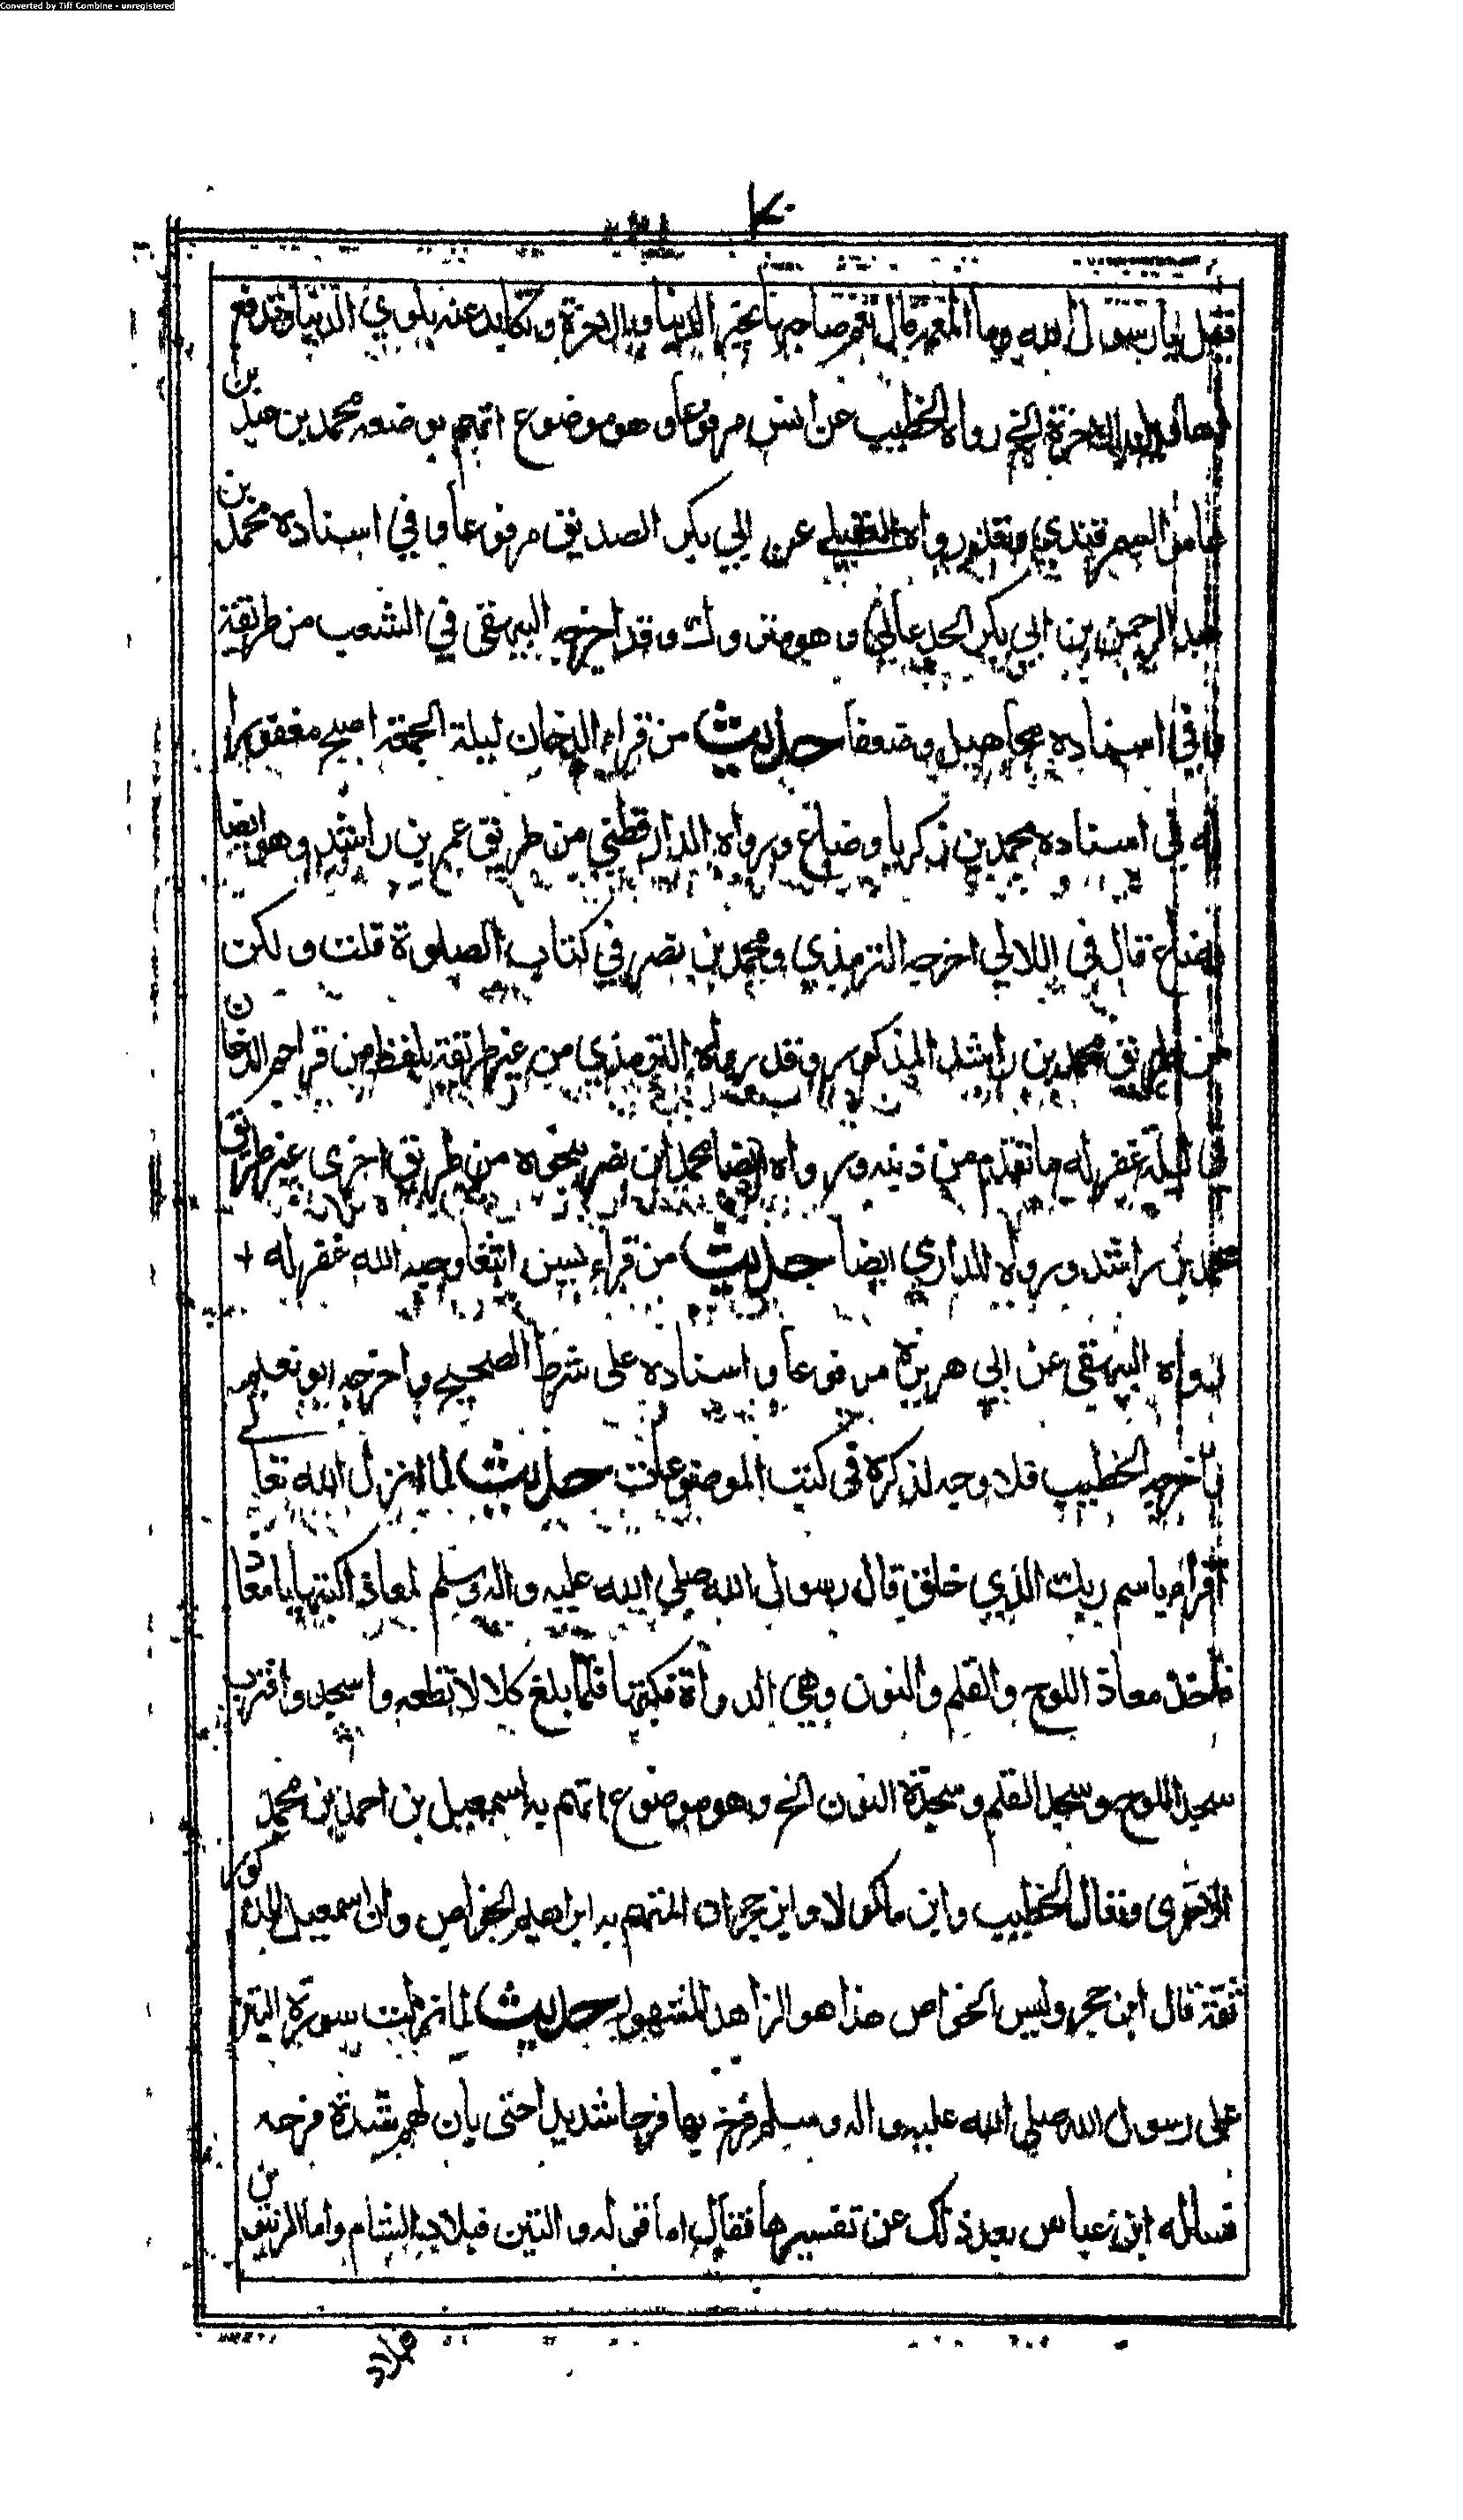 Converted by Tiff Combine - unregistered
فقيل يا رسول الله وما المعمة قال تعم صاحبها بخير الدنيا والاخرة وتكابد عنه بلوي الدنيا وتدفع
اهاويل الاخرة الخ رواه الخطيب عن انس مرفوعا وهو موضوع اتهم بوضعه محمد بن عبد بن
عامر السمرقندي وقد رواه العقيلي عن ابي بكر الصديق مرفوعا وفي اسناده محمد بن
عبد الرحمن بن ابي بكر الجدعاني وهو متروك وقد اخرجه البيهقي في الشعب من طريقه
وفي اسناده مجاهيل وضعفا حديث من قراء الدخان ليلة الجمعة اصبح مغفورا
له في اسناده محمد بن زكريا وضاع ورواه الدارقطني من طريق عمر بن راشد وهو ايضا
وضاع قال في اللالي اخرجه الترمذي ومحمد بن نصر في كتاب الصلوة قلت ولكن
من طريق محمد بن راشد المذكور وقد رواه الترمذي من غير طريقه بلفظ من قرا حم الدخان
في ليلة غفر له ما تقدم من ذنبه ورواه ايضا محمد ابن نصر بنحوه من طريق اخرى غير طريق
محمد بن راشد ورواه الداري ايضا حديث من قراء يسين ابتغا وجه الله غفر له
رواه البيهقي عن ابي هريرة مرفوعا واسناده على شرط الصحيح واخرجه ابو نعيم
واخرجه الخطيب فلا وجه لذكره في كتب الموضوعات حديث لما انزل الله تعالى
اقراء باسم ربك الذي خلق قال رسول الله صلى الله عليه واله وسلم لمعاذ اكتبها يا معاذ
فاخذ معاذ اللوح والقلم والنون وهي الدواة فكتبها فلما بلغ كلا لا تطعه واسجد واقترب
سجد اللوح وسجد القلم وسجدة النون الخ وهو موضوع اتهم به اسمعيل بن احمد بن محمد
الاخرى فقال الخطيب وابن ماكولا وابن حجر ان المتهم به ابراهيم الخواص وان اسمعيل المذكور
ثقة قال ابن حجر وليس الخواص هذا هو الزاهد المشهور حديث لما نزلت سورة التين
على رسول الله صلى الله عليه واله وسلم فرح بها فرحا شديدا حتى بان لهم شدة فرحه
فسائله ابن عباس بعد ذلك عن تفسيرها فقال اما قوله والتين فبلاد الشام واما الزيتون
فبلاد